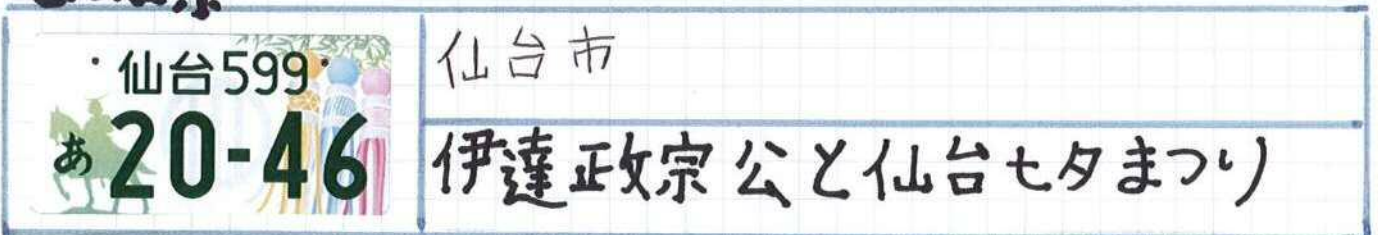 仙台599
あ 20-46
仙台市
伊達政宗公と仙台七夕まつり